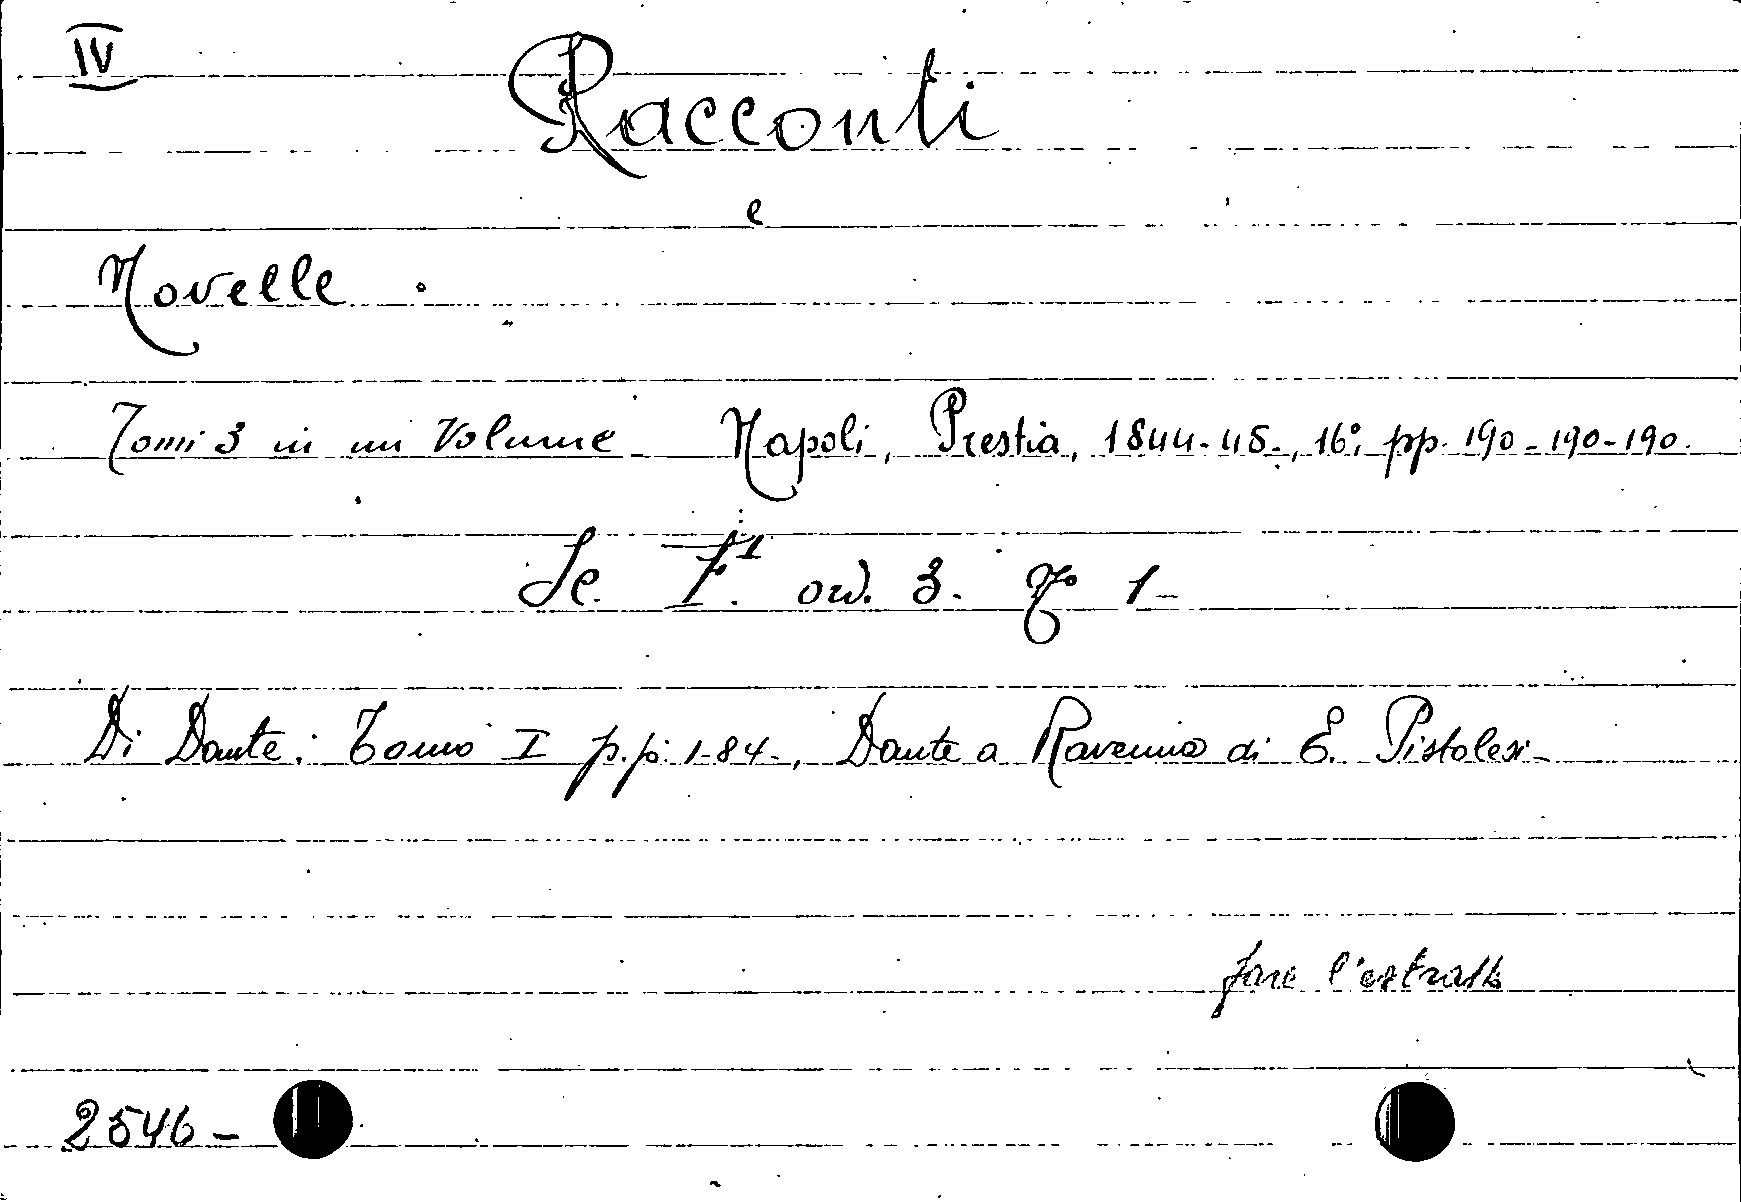 IV
Racconti
e
Novelle.
Tomi 3 in un Volume Napoli, Prestia, 1844-45-, 16°, pp. 190-190-190.
Sc. ord. 3. 1-
Di Dante: Tomo I p.p. 1-84-, Dante a Ravenna di E. Pistolesi-
fare l'estratto
2546-